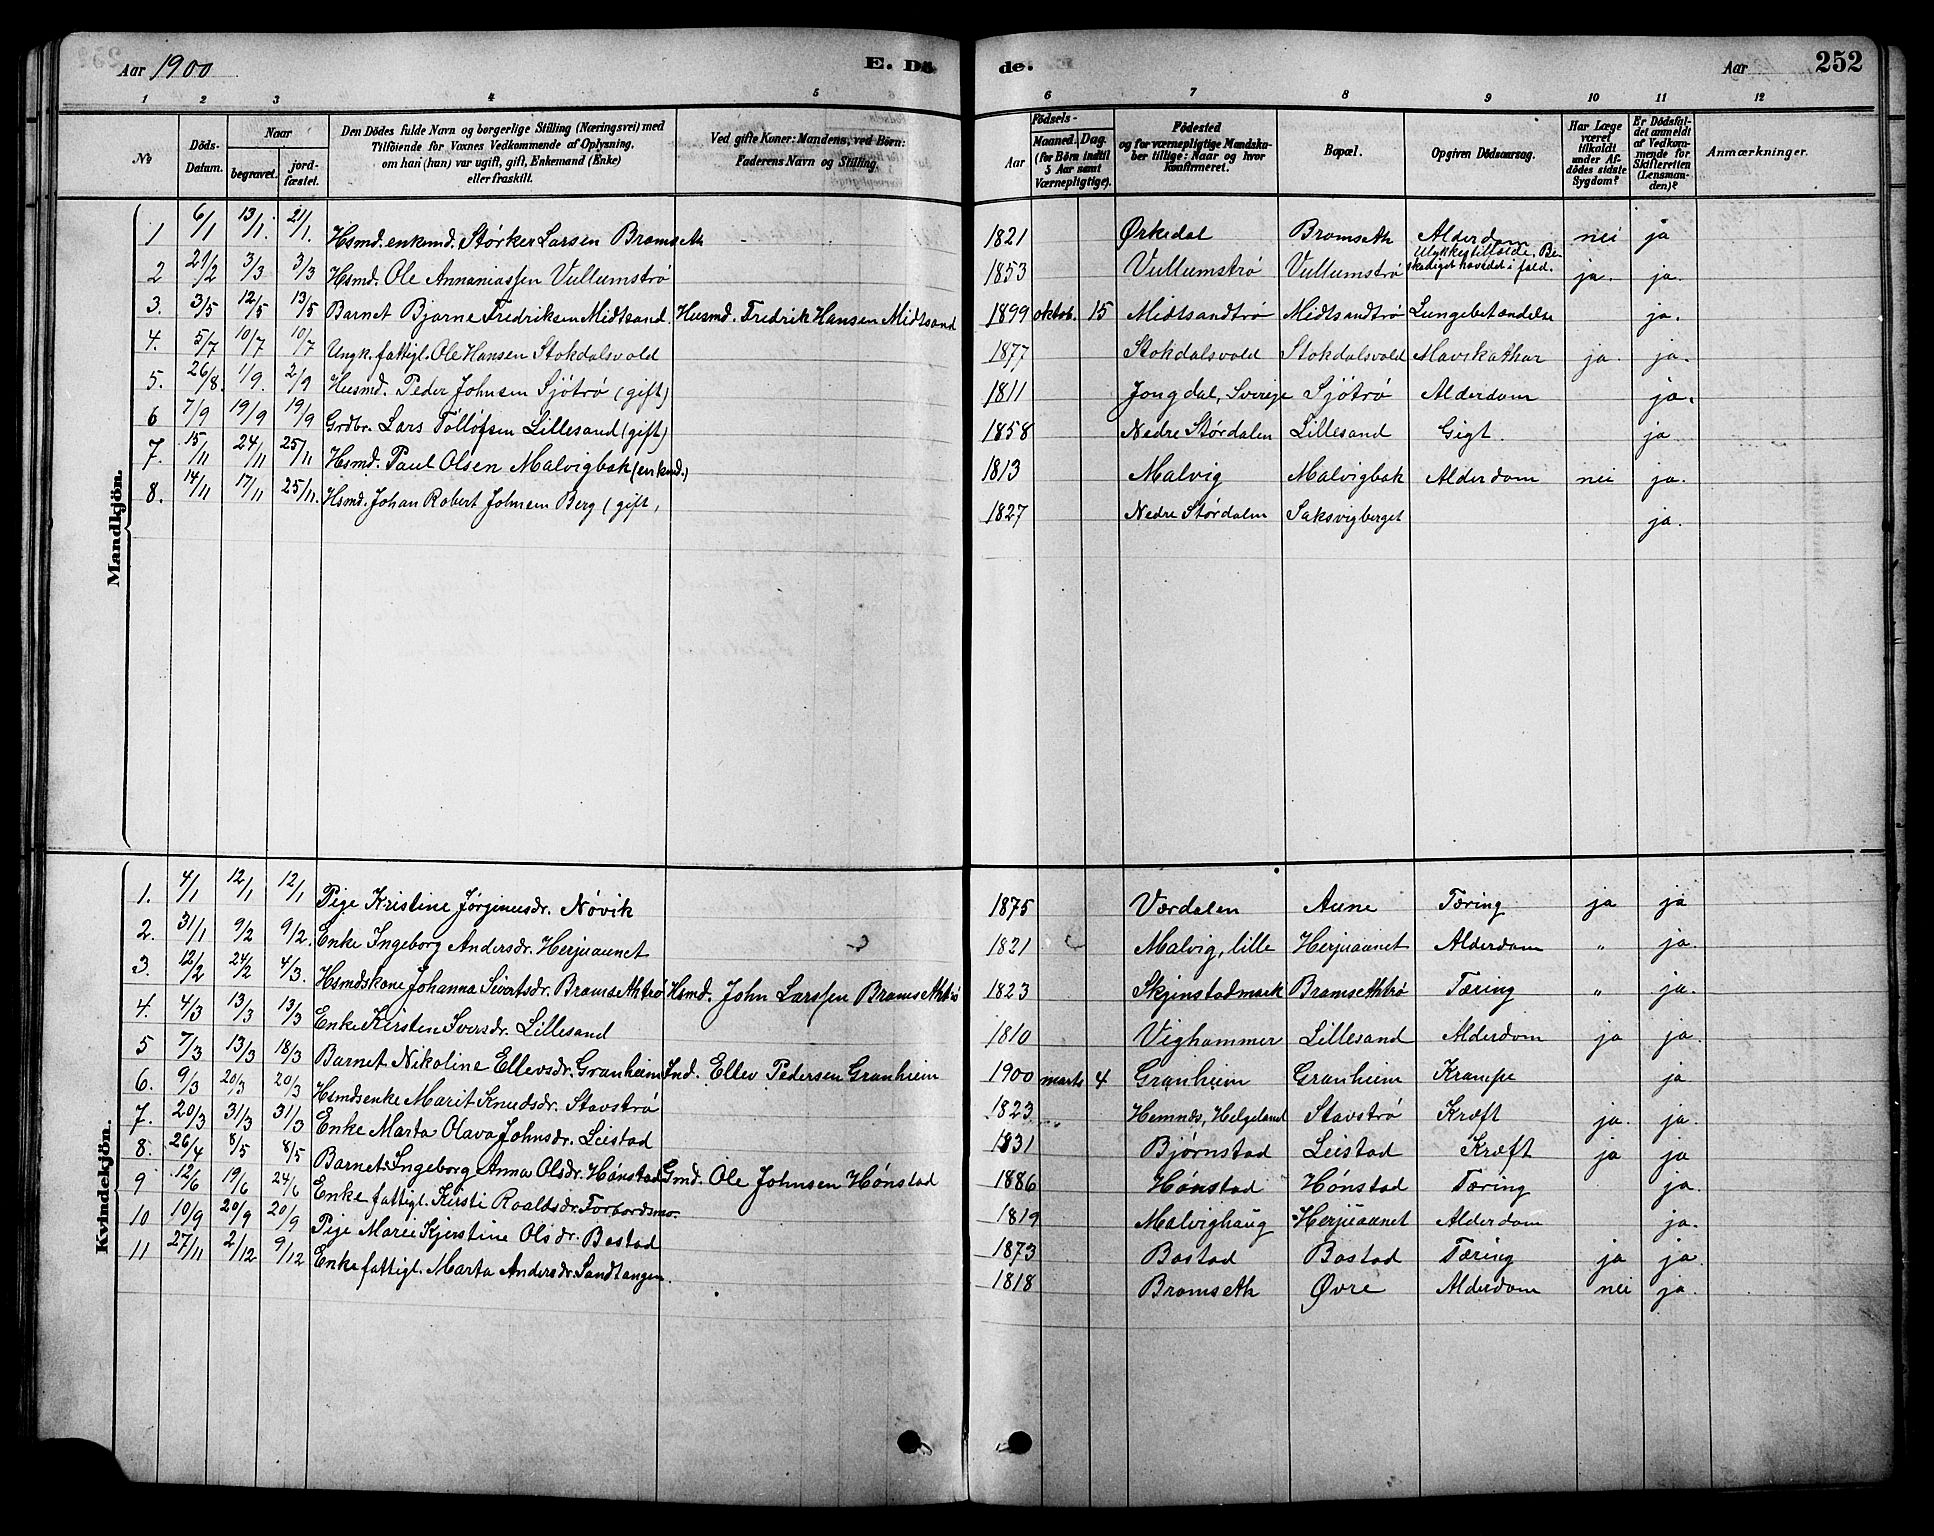 Aar 1900 E. Dö de. Aar 252
1 2 3 4 5 6 7 8 9 10 11 12
No
Döds-Datum.
Naar
begravet.
jord-fæstet.
Den Dödes fulde Navn og borgerlige Stilling (Næringsvei) med
Tilföiende for Voxnes Vedkommende af Oplysning,
om han (hun) var ugift, gift, Enkemand (Enke)
eller fraskilt.
Ved gifte Koner: Mandens, ved Börn:
Faderens Navn og Stilling.
Födsels-
Aar
Maaned. Dag.
(for Börn indtil
5 Aar samt
Værnepligtige).
Födested
og for værnepligtige Mandska-
ber tillige: Naar og hvor
Konfirmeret.
Bopæl.
Opgiven Dödsaarsag.
Har Læge
været
tilkaldt
under Af-
dödes sidste
Sygdom?
Er Dödsfal-
det anmeldt
af Vedkom-
mende for
Skifteretten
(Lensman-
den)?
Anmærkninger.
Mandkjön.
1 6/1 13/1. 21/1. Hsmd. enkmd. Størker Larsen Bromseth 1821 Ørkedal Bromseth Alderdom nei ja
2 27/2 3/3 3/3 Hsmd. Ole Annaniassen Vullumstrø 1853 Vullumstrø Vullumstrø Ulykkestilfælde. Be-
skadiget hovedet i fald. ja. ja.
3. 3/5 12/5 13/5 Barnet Bjarne Fredriksen Midtsand. Husmd. Fredrik Hansen Midtsand 1899 oktob. 15 Midtsandtrø Midtsandtrø Lungebetændelse ja.
4. 5/7 10/7 10/7 Ungk. fattigl. Ole Hansen Stokdalsvold 1877 Stokdalsvold Stokdalsvold Mavekathar ja. ja.
5. 26/8. 1/9. 2/9 Husmd. Peder Johnsen Sjötrø (gift) 1811 Jongdal, Sverige Sjötrø Alderdom ja.
6 7/9 19/9 19/9 Grdbr. Lars Tölløfsen Lillesand (gift) 1858 Nedre Størdalen Lillesand Gigt. ja
7. 15/11 24/11 25/11 Hsmd. Paul Olsen Malvigbak (enkmd.) 1813 Malvig Malvigbak Alderdom nei ja.
8. 14/11 17/11 25/11. Hsmd. Johan Robert Johnsen Berg (gift, 1827 Nedre Størdalen Saksvigberget ja.
Kvindekjön.
1. 4/1 12/1 12/1 Pige Kristine Jørginusdr. Nøvik 1875 Værdalen Aune Tæring ja ja
2. 31/1 9/2 9/2. Enke Ingeborg Andersdr. Herjuaunet 1821 Malvig, lille Herjuaunet Alderdom " ja.
3. 12/2 24/2 4/3. Hsmdskone Johanna Sivertsdr. Bromsethtrø Hsmd. John Larssen Bromsethtrø 1823 Skjenstadmark Bromsethtrø Tæring " ja.
4. 4/3 13/3 13/3 Enke Kirsten Iversdr. Lillesand 1810 Vighammer Lillesand Alderdom ja ja.
5 7/3 13/3 18/3 Barnet Nikoline Ellevsdr. Granheim Ind. Ellev Pedersen Granheim 1900 marts 4 Granheim Granheim Krampe ja
6. 9/3 20/3 20/3 Hsmdsenke Marit Knudsdr. Stavstrø 1823 Hemnæs, Helgeland Stavstrø Kræft ja. ja.
7. 20/3 31/3 31/3 Enke Marta Olava Johnsdr. Leistad 1831 Bjørnstad Leistad Kræft ja ja
8. 26/4 8/5 8/5 Barnet Ingeborg Anna Olsdr. Hønstad Gmd. Ole Johnsen Hønstad 1886 Hønstad Hønstad Tæring ja.
9 12/6 19/6 24/6 Enke fattigl. Kirsti Roaldsdr. Forbordsmo. 1819 Malvighaug Herjuaunet Alderdom ja.
10 10/9 20/9 20/9 Pige Marie Kjerstine Olsdr. Bostad 1873 Bostad Bostad Tæring ja ja.
11 27/11 2/12 9/12 Enke fattigl. Marta Andersdr. Sandtangen. 1818 Bromseth Øvre Alderdom nei ja.